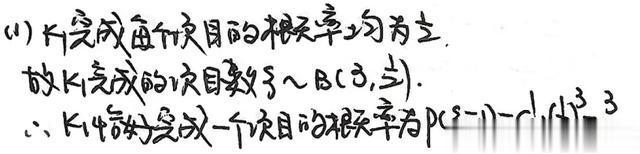 (1) K₁完成每个项目的概率均为½.
故K₁完成的项目数ξ~B(3,½).
∴ K₁恰好完成一个项目的概率为P(ξ=1)=C